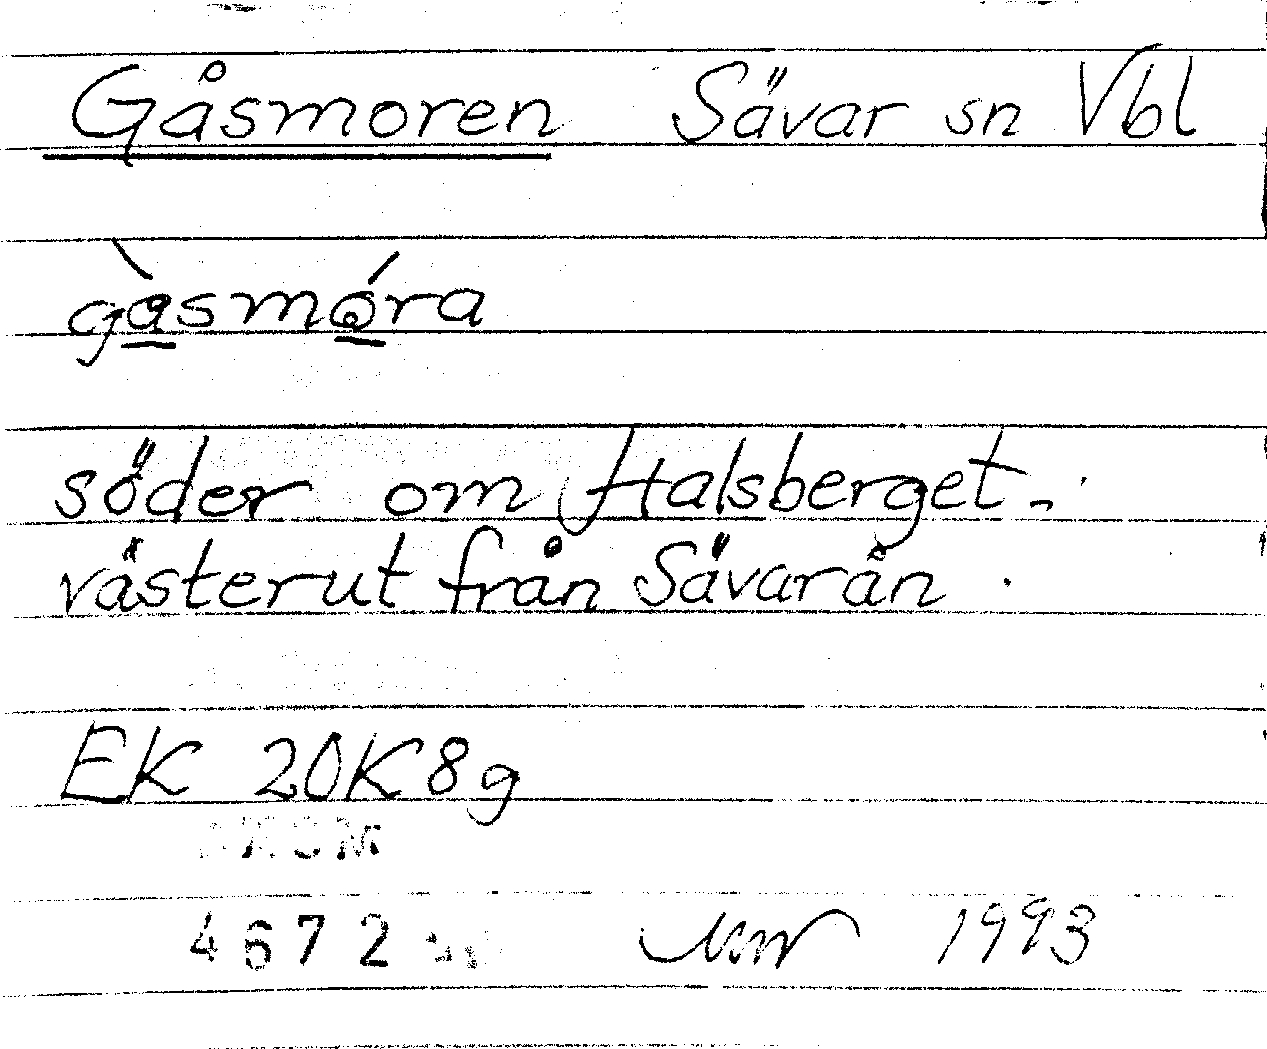 Gåsmoren Sävar sn Vbl
gàsmóra
söder om Halsberget -
västerut från Sävarån .
EK 20K8g
4672
1993